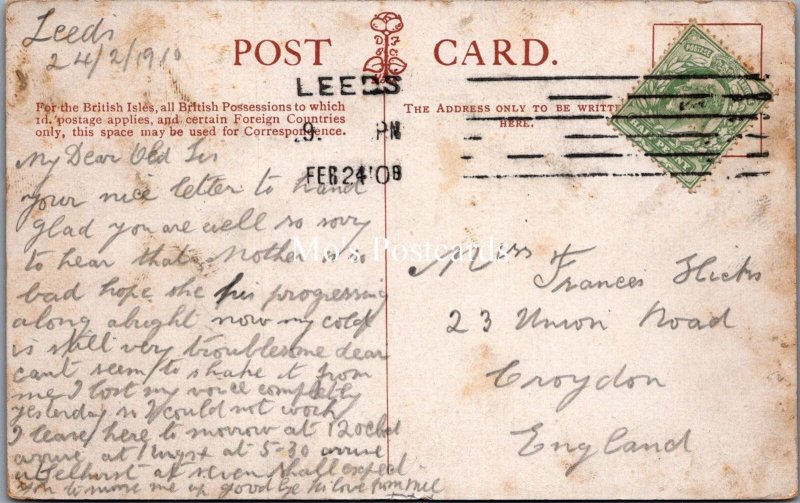 Leeds
24/2/1910
POST CARD.
For the British Isles, all British Possessions to which
1d. postage applies, and certain Foreign Countries
only, this space may be used for Correspondence.
THE ADDRESS ONLY TO BE WRITTE
HERE.
LEEDS
9. PM
FEB 24 '08
POSTAGE
HALFPENNY
My Dear Old Sis
your nice letter to hand
glad you are well so sorry
to hear that Mother is so
bad hope she is progressing
along alright now my cold
is still very troublesome dear
cant seem to shake it from
me I lost my voice completly
yesterday so I could not work
I leave here to morrow at 12 oclock
arrive at at 5-30 arrive
at seven shall expect
you to me up good bye love from
Miss Frances Hicks
23 Union Road
Croydon
England
Mo's Postcards